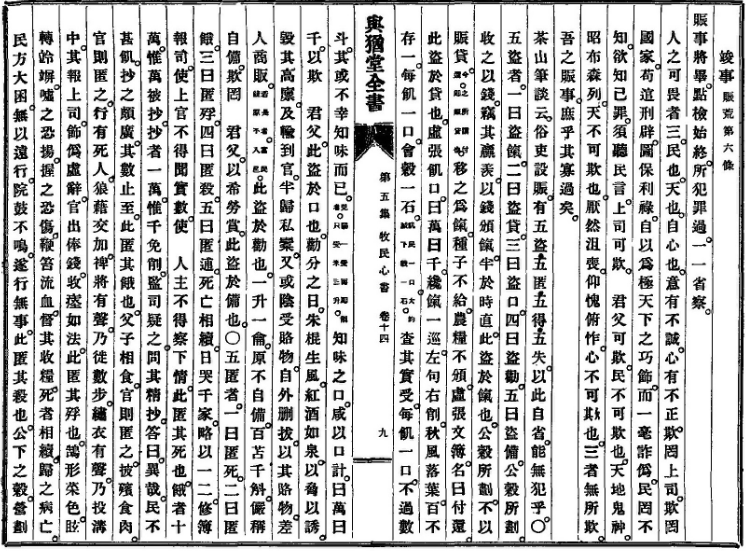 竣事 賑荒第六條
賑事將畢點檢始終所犯罪過一一省察
人之可畏者三民也天也自心也意有不誠心有不正欺罔上司欺罔
國家苟逭刑辟圖保利祿自以爲極天下之巧飾而一毫詐僞民罔不
知欲知己罪須聽民言上司可欺 君父可欺民不可欺也天地鬼神
昭布森列天不可欺也厭然沮喪仰愧俯怍心不可欺也三者無所欺
吾之賑事庶乎其寡過矣
茶山筆談云俗吏設賑有五盜五匿五得五失以此自省能無犯乎〇
五盜者一曰盜餼二曰盜貸三曰盜口四曰盜勸五曰盜備公穀所劃
收之以錢竊其贏羨以錢頒餼半於時直此盜於餼也公穀所劃不以
賑貸移之爲餼種子不給農糧不頒虛張文簿名曰付還
此盜於貸也虛張飢口曰萬曰千纔餼一巡左句右削秋風落葉百不
存一每飢一口會穀一石查其實受每飢一口不過數
與猶堂全書
第五集 牧民心書 卷十四
九
斗其或不幸知味而已知味之口咸以口計曰萬曰
千以欺 君父此盜於口也勸分之日朱棍生風紅酒如泉以脅以誘
毀其高廩及輸到官半歸私橐又或陰受賂物自外刪拔以其賂物差
人商販此盜於勸也一升一龠原不自備百苫千斛儼稱
自備欺罔 君父以希勞賞此盜於備也〇五匿者一曰匿死二曰匿
餓三曰匿殍四曰匿殺五曰匿逋死亡相續日哭千家略以一二修簿
報司使上官不得聞實數使 人主不得察下情此匿其死也餓者十
萬惟萬被抄抄者一萬惟千免削監司疑之問其精抄答曰異哉民不
甚飢抄之頗廣其數止至此匿其餓也父子相食官則匿之披殯食肉
官則匿之行有死人狼藉交加裨將有聲乃徙數步繡衣有聲乃投溝
中其報上司飾爲虛辭官出俸錢收瘞如法此匿其殍也鵠形菜色眩
轉跉竮噓之恐揚握之恐傷鞭笞流血督其收糧死者相續歸之病亡
民方大困無以遠行院鼓不鳴遂行無事此匿其殺也公下之穀嘗劃